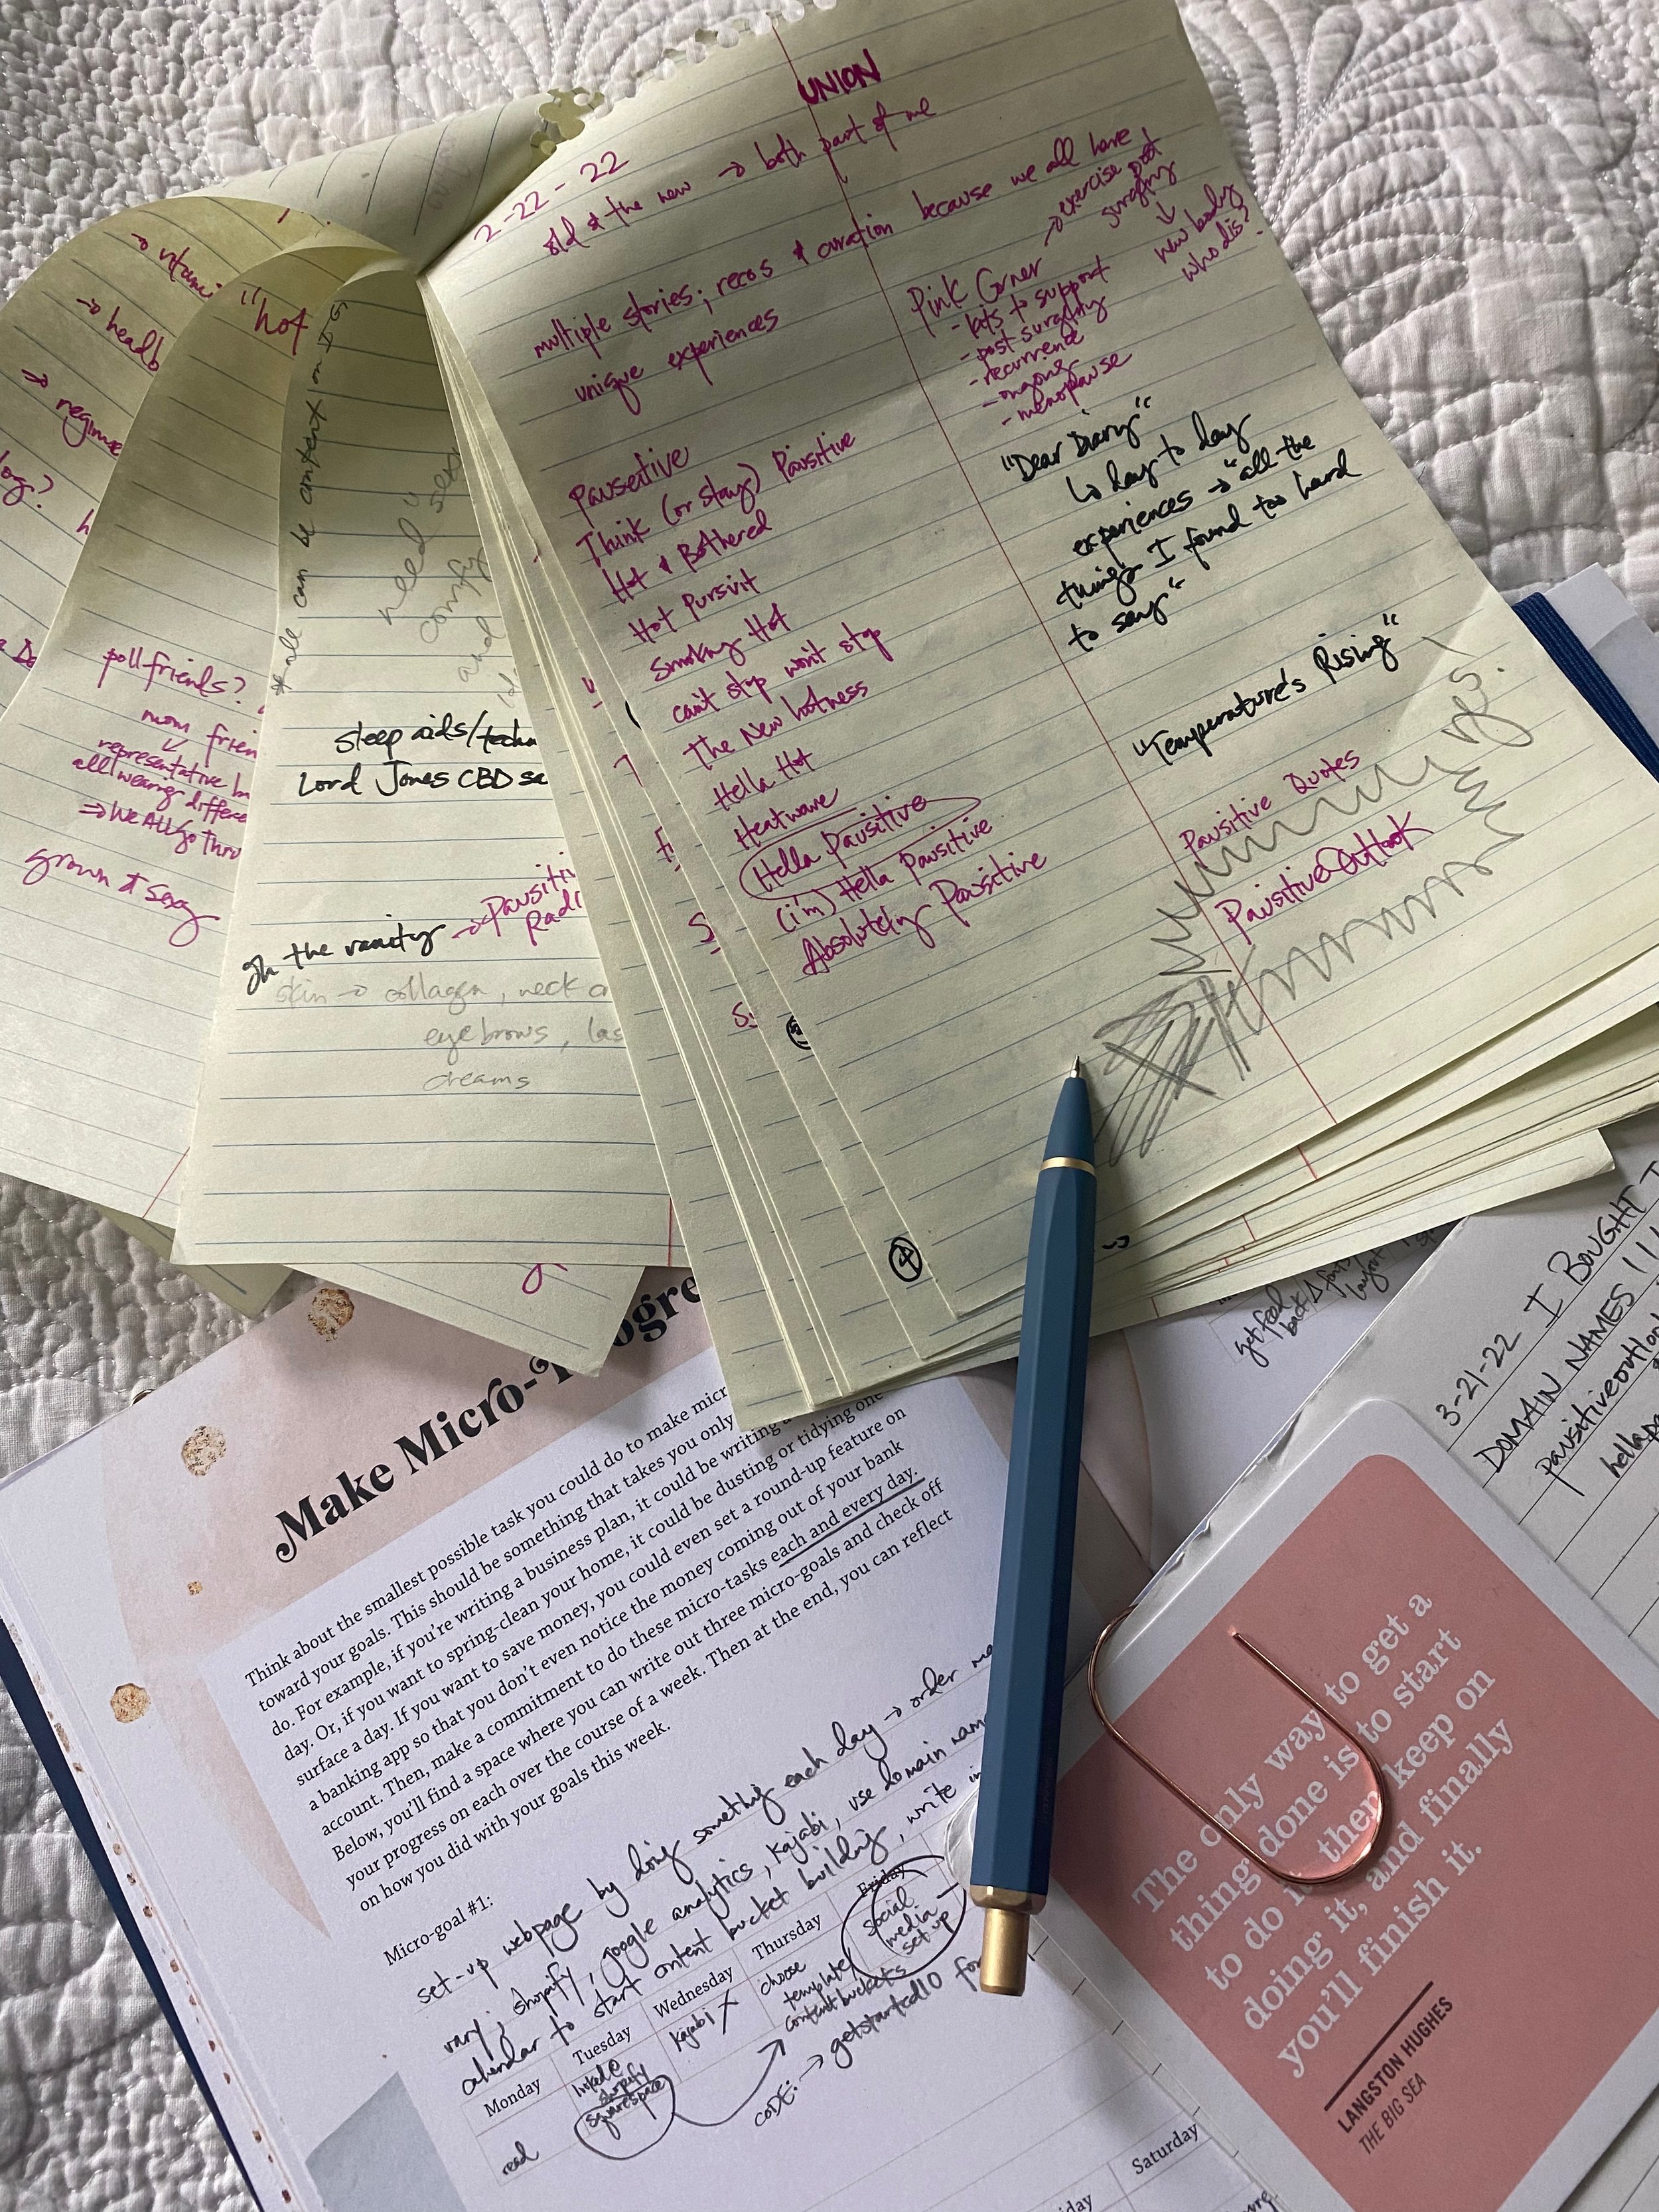 UNION
2-22-22
old & the new → both part of me
multiple stories; recos & curation because we all have
unique experiences
→ exercise post
surgery
↓
new body
who dis?
Pink Corner
- kits to support
- post surgery
- recurrence
- ongoing
- menopause
Pausetive
Think (or stay) Pausitive
Hot & Bothered
Hot Pursuit
Smoking Hot
can't stop won't stop
The New hotness
Hella Hot
Heatwave
Hella Pausitive
(i'm) Hella Pausitive
Absolutely Pausitive
"Dear Diary"
↳ day to day
experiences → "all the
things I found too hard
to say"
"Temperature's Rising"
yes!
Pausitive Quotes
Pausitive Outlook
4
→ headb
"hot
poll friends?
mom frien
↓
representative
all wearing differe
⇒ We All go thro
grown & sexy
* all can be content on IG
need"
comfy
and
sleep aids/techn
Lord Jones CBD
the vanity → Pausitiv
Radi
skin → collagen, neck
eyebrows, las
dreams
get feed
back
fonts
layout
3-21-22 I BOUGHT T
DOMAIN NAMES !!!
pausitiveoutlo
hellapa
Make Micro-Progre
Think about the smallest possible task you could do to make micr
toward your goals. This should be something that takes you only
do. For example, if you're writing a business plan, it could be writing
day. Or, if you want to spring-clean your home, it could be dusting or tidying one
surface a day. If you want to save money, you could even set a round-up feature on
a banking app so that you don't even notice the money coming out of your bank
account. Then, make a commitment to do these micro-tasks each and every day.
Below, you'll find a space where you can write out three micro-goals and check off
your progress on each over the course of a week. Then at the end, you can reflect
on how you did with your goals this week.
Micro-goal #1:
set-up webpage by doing something each day → order
vary; shopify, google analytics, kajabi, use domain nam
calendar to start content bucket building, write in
Monday
Tuesday
Wednesday
Thursday
Friday
read
shopify
squarespace
kajabi
choose
template/
content buckets
social
media
set up
CODE: → getstarted10 for
Saturday
The only way to get a
thing done is to start
to do it, then keep on
doing it, and finally
you'll finish it.
LANGSTON HUGHES
THE BIG SEA